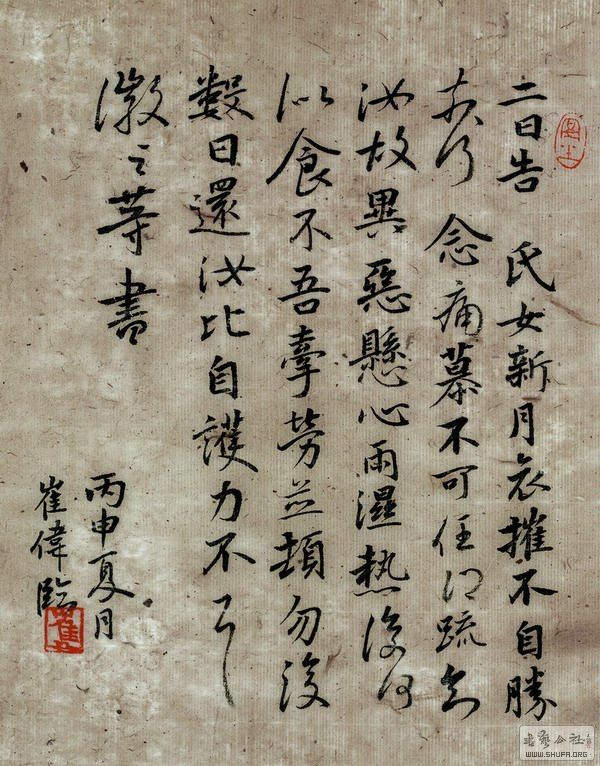 二日告 氏女新月哀摧不自勝
奈何 念痛慕不可任得疏知
汝故異惡懸心雨濕熱復何
似食不吾牽勞並頓勿復
數日還汝比自護力不一一
羲之等書
丙申夏月
崔偉臨
書藝公社
WWW.SHUFA.ORG